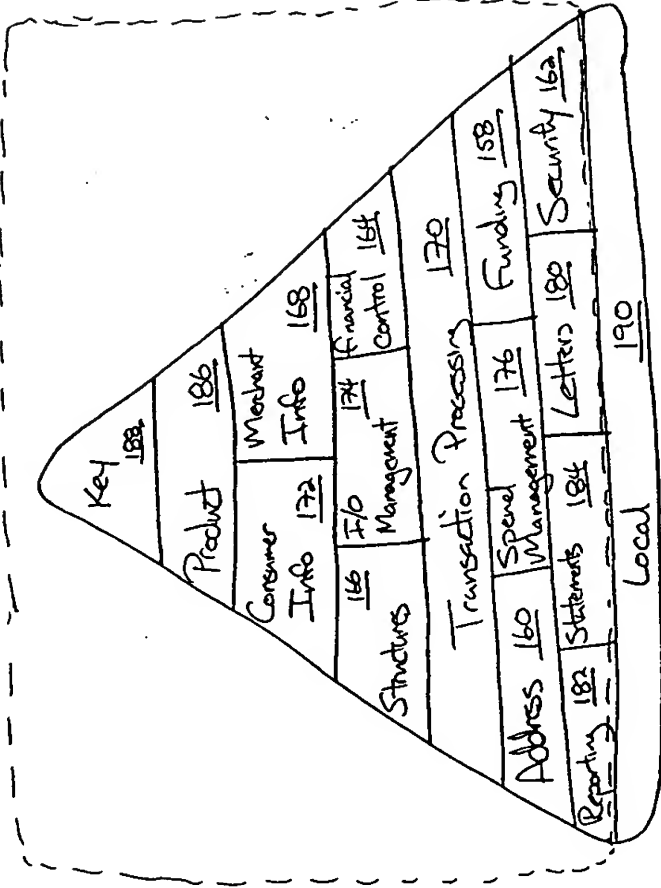 Key
188
Product 186
Consumer
Info 172
Merchant
Info 168
Structures 166
I/O 174
Management
Financial
Control 164
Transaction Processing 170
Address 160
Spend
Management 176
Funding 158
Reporting 182
Statements 184
Letters 180
Security 162
Local 190